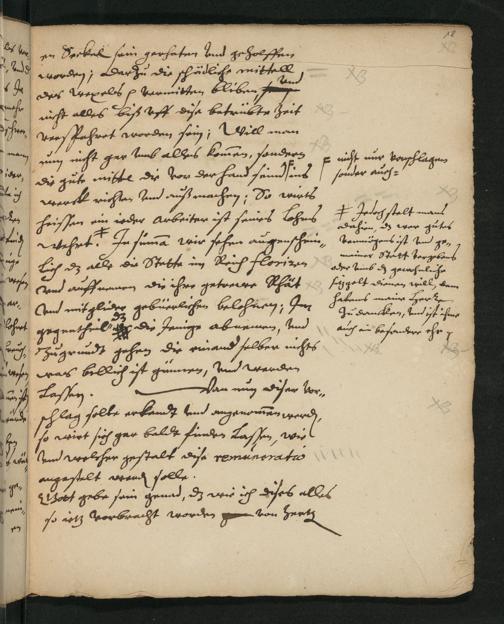 18
en Seckel sein gerathen und geholffen
worden; darzu die schädliche mittell
des Wexels p vermitten bliben, und
nicht alles biß uff dise betrübte Zeit
verspahret worden sein; Will man
nun nicht gar umb alles komen, sondern
die gute mittel die vor der hand seind ins
werck richten und auß machen; So wirts
heissen ein ieder arbeiter ist seines lohns
wehrt. In suma wir sehen augenschein-
lich dz alle die Stette im Reich florieren
und auffnemen die ihre getrewe Rhät
und mitglider gebürlichen belohnen; Im
gegentheil dz die Jenige abnemen, und
zugrundt gehen die einand selber nichts
was billich ist günnen, und werden
lassen. Da nun diser vor-
schlag solte erkandt und angenommen werd,
so wirt sich gar baldt finden lassen, wie
und welcher gestalt dise remuneratio
angestelt werd solle.
Gott gebe sein gnad, dz wie ich dises alles
so ietz vorbracht worden von hertz
nicht nur vorschlagen
sonder auch
mans
dz wer gutes
vermögens ist und
meiner Statt vergebens
oder umb dz gewohnliche
dienen will, dem
haben
zu dancken, und ist ihme
auch ein besondere ehr